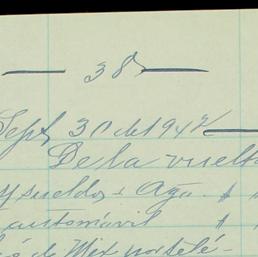 — 38 —
Sept. 30 de 1942 —
De la vuelta
y sueldos
automóvil
de Mex por telé-